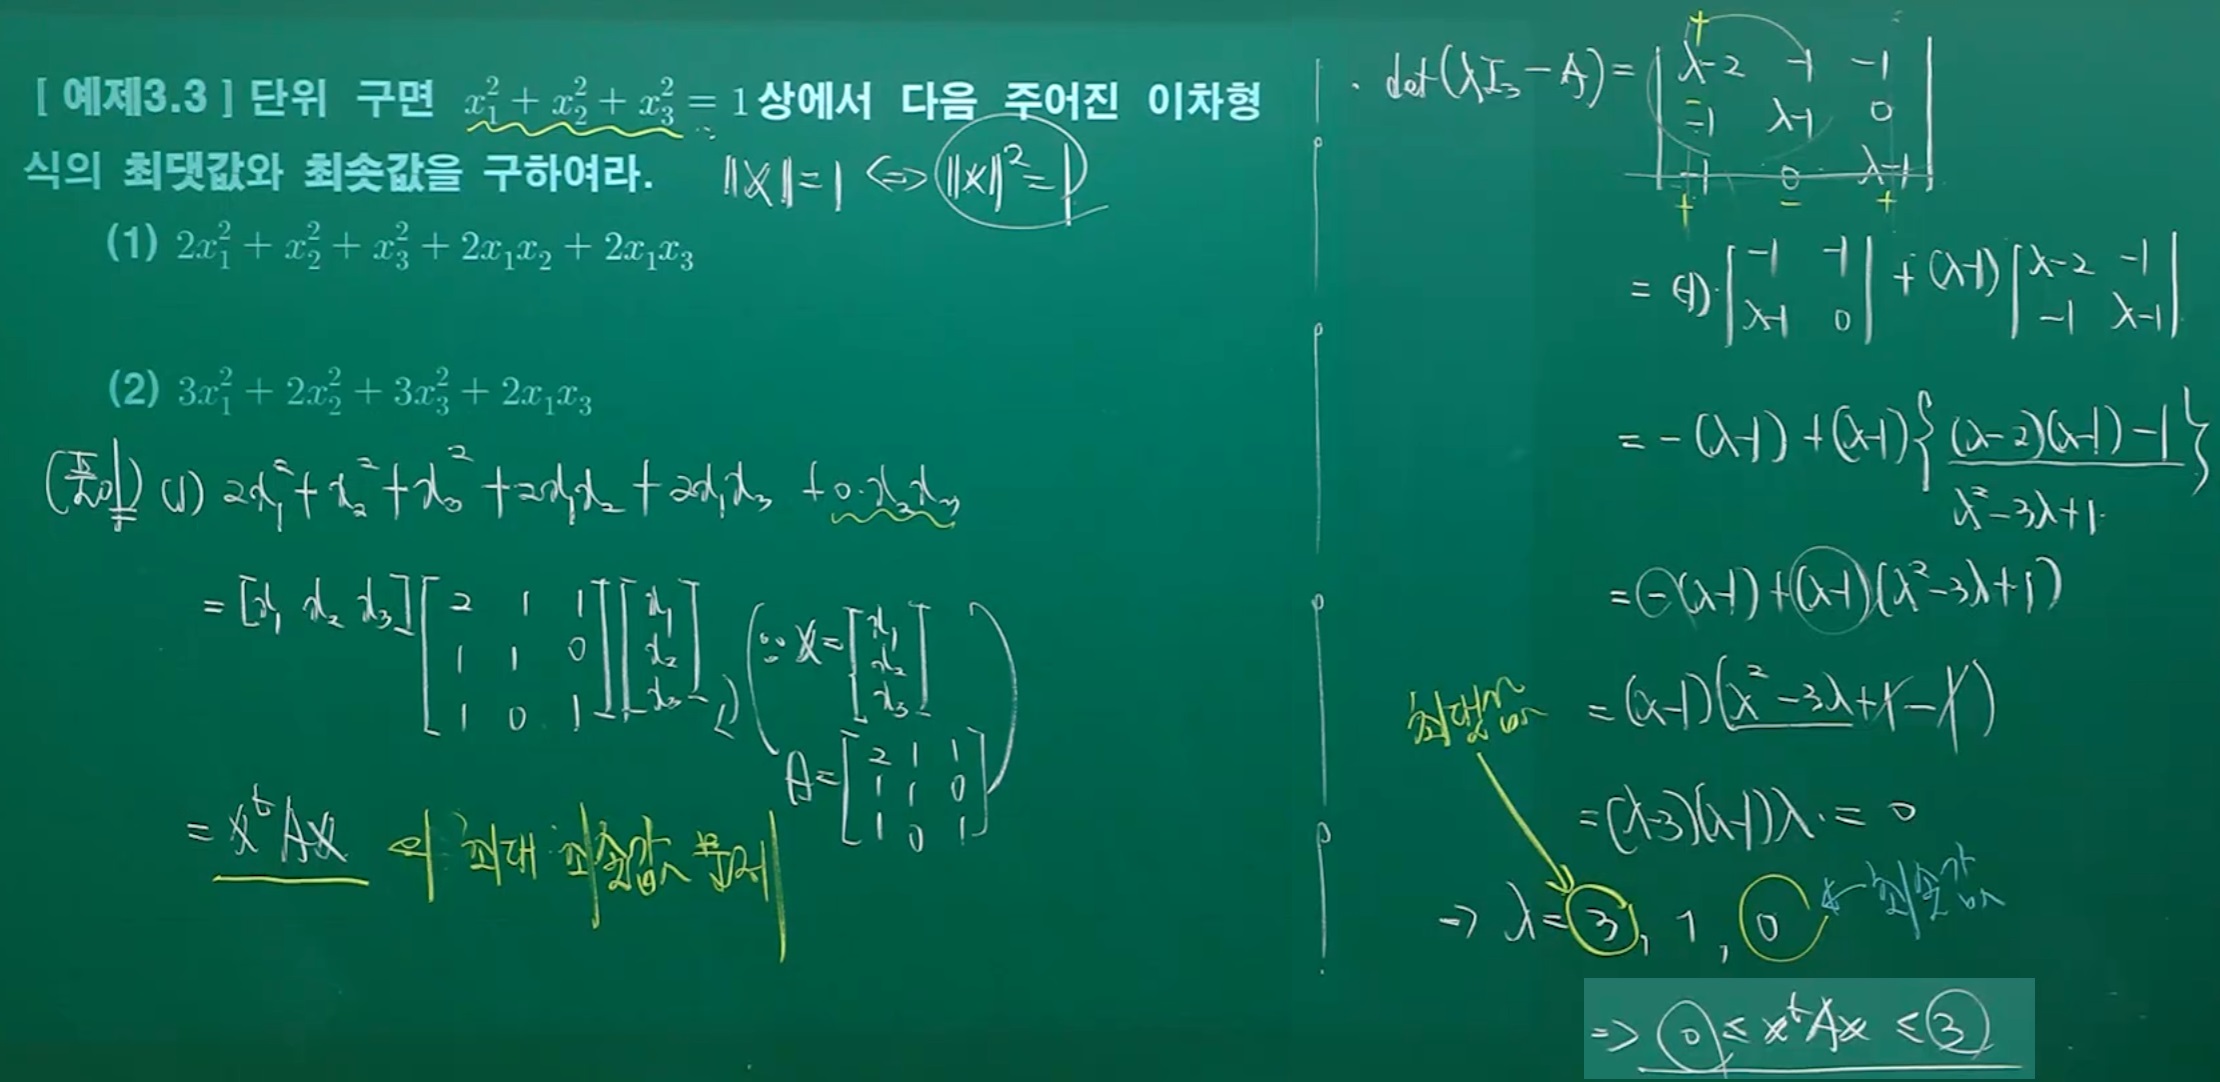 [ 예제3.3 ] 단위 구면 x₁² + x₂² + x₃² = 1 상에서 다음 주어진 이차형
식의 최댓값와 최솟값을 구하여라. ||x||=1 <=> ||x||²=1
(1) 2x₁² + x₂² + x₃² + 2x₁x₂ + 2x₁x₃
(2) 3x₁² + 2x₂² + 3x₃² + 2x₁x₃
(풀이) (1) 2x₁² + x₂² + x₃² + 2x₁x₂ + 2x₁x₃ + 0·x₂x₃
= [x₁ x₂ x₃] [2 1 1; 1 1 0; 1 0 1] [x₁; x₂; x₃]
(∵ x = [x₁; x₂; x₃]
A = [2 1 1; 1 1 0; 1 0 1])
= xᵗAx 의 최대 최솟값 문제
· det(λI₃ - A) = |λ-2 -1 -1; -1 λ-1 0; -1 0 λ-1|
= (-1)·|-1 -1; λ-1 0| + (λ-1)|λ-2 -1; -1 λ-1|
= -(λ-1) + (λ-1){(λ-2)(λ-1) - 1}
λ² - 3λ + 1
= -(λ-1) + (λ-1)(λ² - 3λ + 1)
= (λ-1)(λ² - 3λ + 1 - 1)
= (λ-3)(λ-1)λ = 0
최댓값
=> λ = 3, 1, 0 ← 최솟값
=> 0 ≤ xᵗAx ≤ 3